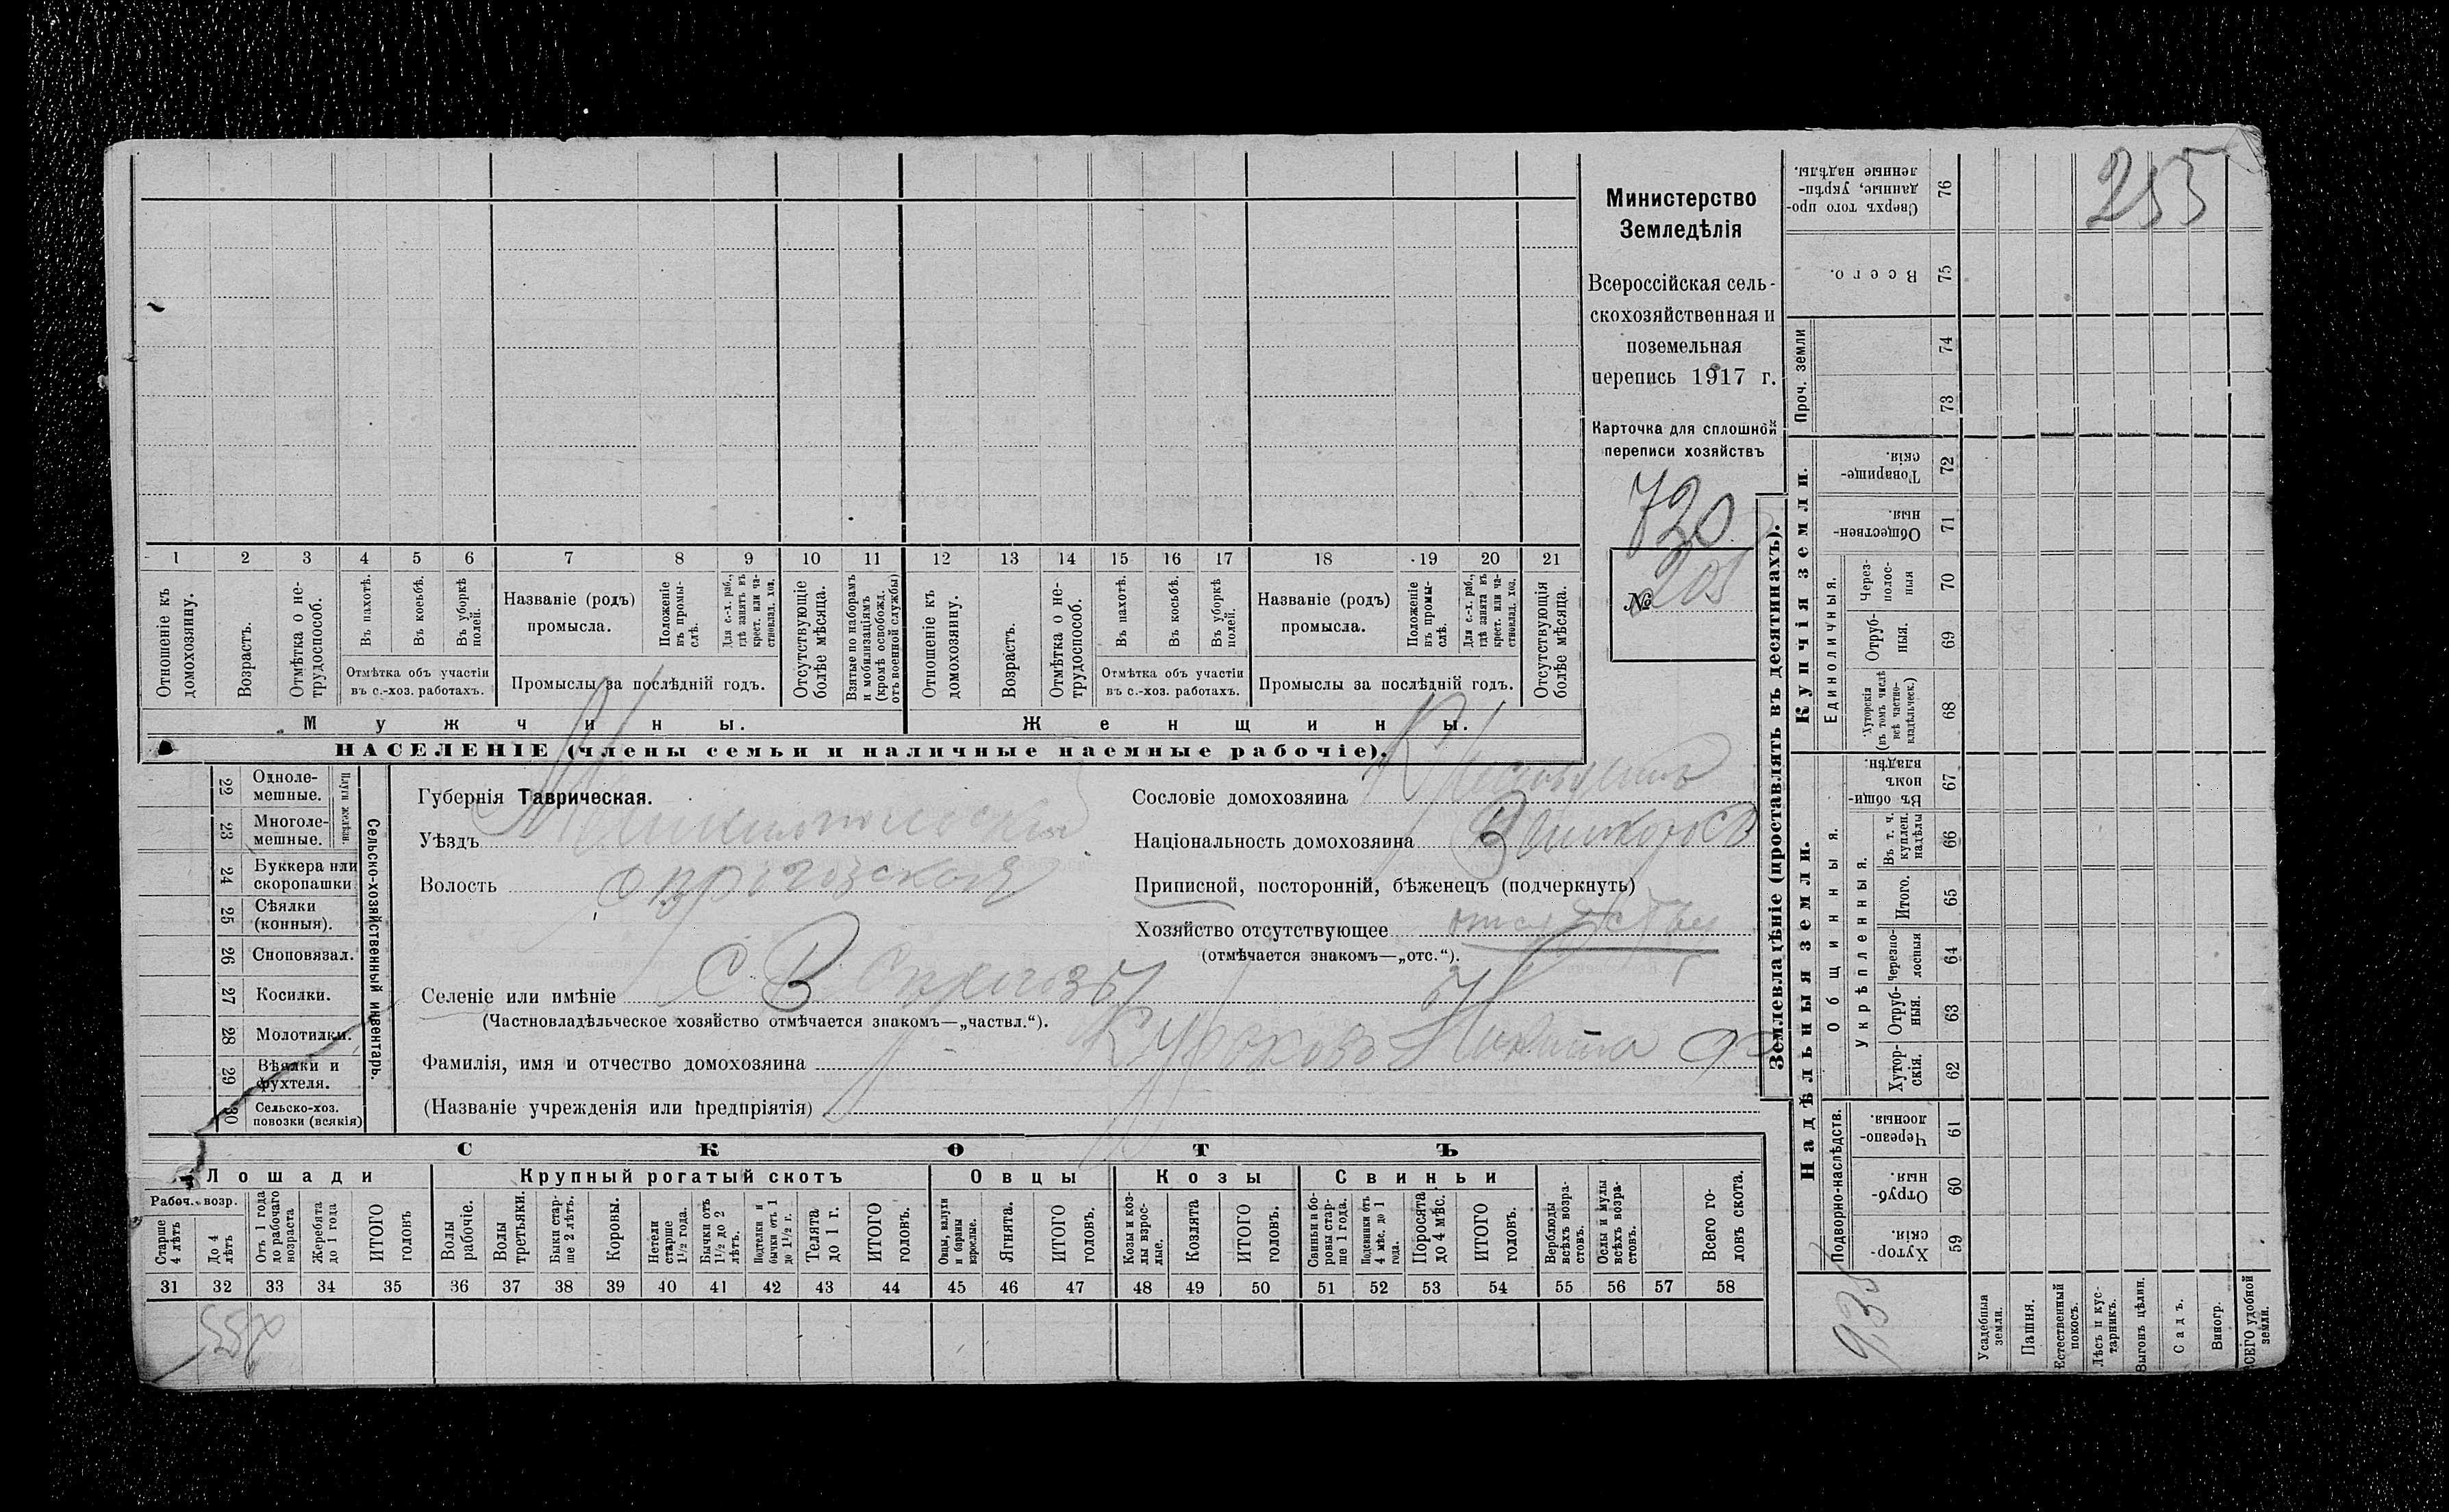 255
Министерство
Земледѣлія
Всероссійская сель-
скохозяйственная и
поземельная
перепись 1917 г.
Карточка для сплошной
переписи хозяйствъ
720
№ 205
1 2 3 4 5 6 7 8 9 10 11 12 13 14 15 16 17 18 19 20 21
Отношеніе къ домохозяину.
Возрастъ.
Отмѣтка о не-трудоспособ.
Въ пахотѣ.
Въ косьбѣ.
Въ уборкѣ полей.
Отмѣтка объ участіи
въ с.-хоз. работахъ.
Названіе (родъ)
промысла.
Положеніе въ промы-слѣ.
Для с.-х. раб., гдѣ занятъ въ крест. или ча-стновлад. хоз.
Промыслы за послѣдній годъ.
Отсутствующіе болѣе мѣсяца.
Взятые по наборамъ и мобилизаціямъ (кромѣ освобожд. отъ военной службы)
Отношеніе къ домохозяину.
Возрастъ.
Отмѣтка о не-трудоспособ.
Въ пахотѣ.
Въ косьбѣ.
Въ уборкѣ полей.
Отмѣтка объ участіи
въ с.-хоз. работахъ.
Названіе (родъ)
промысла.
Положеніе въ промы-слѣ.
Для с.-х. раб., гдѣ занята въ крест. или ча-стновлад. хоз.
Промыслы за послѣдній годъ.
Отсутствующія болѣе мѣсяца.
Мужчины.
Женщины.
НАСЕЛЕНІЕ (члены семьи и наличные наемные рабочіе).
Сельско-хозяйственный инвентарь.
Плуги желѣзн.
22 Одноле-мешные.
23 Многоле-мешные.
24 Буккера или скоропашки
25 Сѣялки (конныя).
26 Сноповязал.
27 Косилки.
28 Молотилки.
29 Вѣялки и фухтеля.
30 Сельско-хоз. повозки (всякія)
Губернія Таврическая.
Уѣздъ Мелитопольскій
Волость
Селеніе или имѣніе с В Сирогозы
(Частновладѣльческое хозяйство отмѣчается знакомъ—„частвл.“).
Фамилія, имя и отчество домохозяина Никита
(Названіе учрежденія или предпріятія)
Сословіе домохозяина
Національность домохозяина
Приписной, посторонній, бѣженецъ (подчеркнуть)
Хозяйство отсутствующее
(отмѣчается знакомъ—„отс.“).
СКОТЪ
Лошади
Крупный рогатый скотъ
Овцы
Козы
Свиньи
Рабоч. возр.
Старше 4 лѣтъ
До 4 лѣтъ
Отъ 1 года до рабочаго возраста
Жеребята до 1 года
ИТОГО головъ
Волы рабочіе.
Волы третьяки.
Быки стар-ше 2 лѣтъ.
Коровы.
Нетели старше 1½ года.
Бычки отъ 1½ до 2 лѣтъ.
Подтелки и бычки отъ 1 до 1½ г.
Телята до 1 г.
ИТОГО головъ.
Овцы, валухи и бараны взрослые.
Ягнята.
ИТОГО головъ.
Козы и коз-лы взрос-лые.
Козлята
ИТОГО головъ.
Свиньи и бо-ровы стар-ше 1 года.
Подсвинки отъ 4 мѣс. до 1 года.
Поросята до 4 мѣс.
ИТОГО головъ.
Верблюды всѣхъ возра-стовъ.
Ослы и мулы всѣхъ возра-стовъ.
Всего го-ловъ скота.
31 32 33 34 35 36 37 38 39 40 41 42 43 44 45 46 47 48 49 50 51 52 53 54 55 56 57 58
Землевладѣніе (проставлять въ десятинахъ).
Надѣльныя земли.
Купчія земли.
Проч. земли
Подворно-наслѣдств.
Общинныя.
Укрѣпленныя.
Единоличныя.
Сверхъ того про-данные, укрѣп-ленные надѣлы. 76
Всего. 75
74
73
Товарище-скія. 72
Обществен-ныя. 71
Через-полос-ныя 70
Отруб-ныя. 69
Хуторскія (въ томъ числѣ всѣ частно-владѣльческ.) 68
Въ общи-номъ владѣн. 67
Въ т. ч. куплен. надѣлы 66
Итого. 65
Черезпо-лосныя 64
Отруб-ныя. 63
Хутор-скія. 62
Черезпо-лосныя 61
Отруб-ныя. 60
Хутор-скія. 59
Усадебныя земли.
Пашня.
Естественный покосъ.
Лѣсъ и кус-тарникъ.
Выгонъ цѣлин.
Садъ.
Виногр.
ВСЕГО удобной земли.